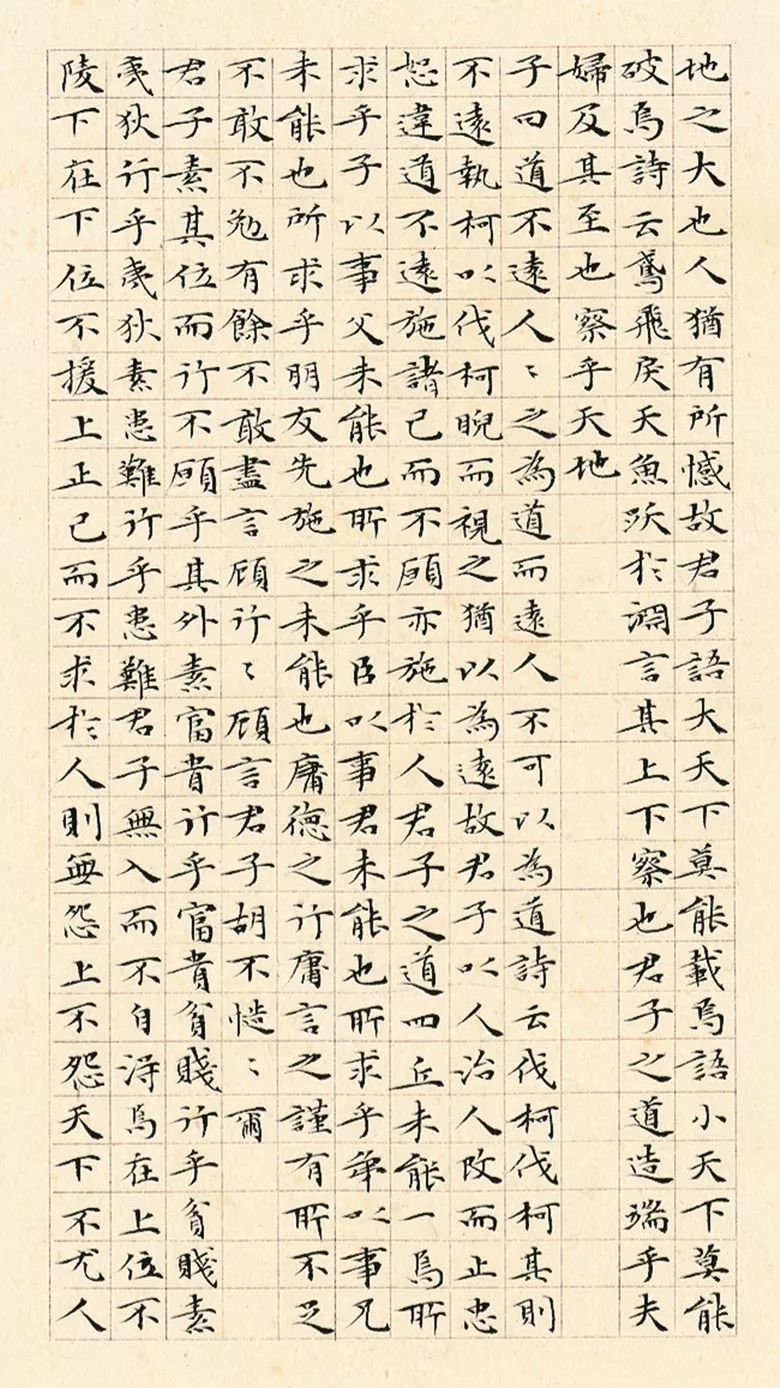 地之大也人猶有所憾故君子語大天下莫能載焉語小天下莫能
破焉詩云鳶飛戾天魚躍於淵言其上下察也君子之道造端乎夫
婦及其至也察乎天地
子曰道不遠人〻之為道而遠人不可以為道詩云伐柯伐柯其則
不遠執柯以伐柯睨而視之猶以為遠故君子以人治人改而止忠
恕違道不遠施諸己而不願亦施於人君子之道四丘未能一焉所
求乎子以事父未能也所求乎臣以事君未能也所求乎弟以事兄
未能也所求乎朋友先施之未能也庸德之行庸言之謹有所不足
不敢不勉有餘不敢盡言顧行〻顧言君子胡不慥〻爾
君子素其位而行不願乎其外素富貴行乎富貴貧賤行乎貧賤素
夷狄行乎夷狄素患難行乎患難君子無入而不自得焉在上位不
陵下在下位不援上正己而不求於人則無怨上不怨天下不尤人